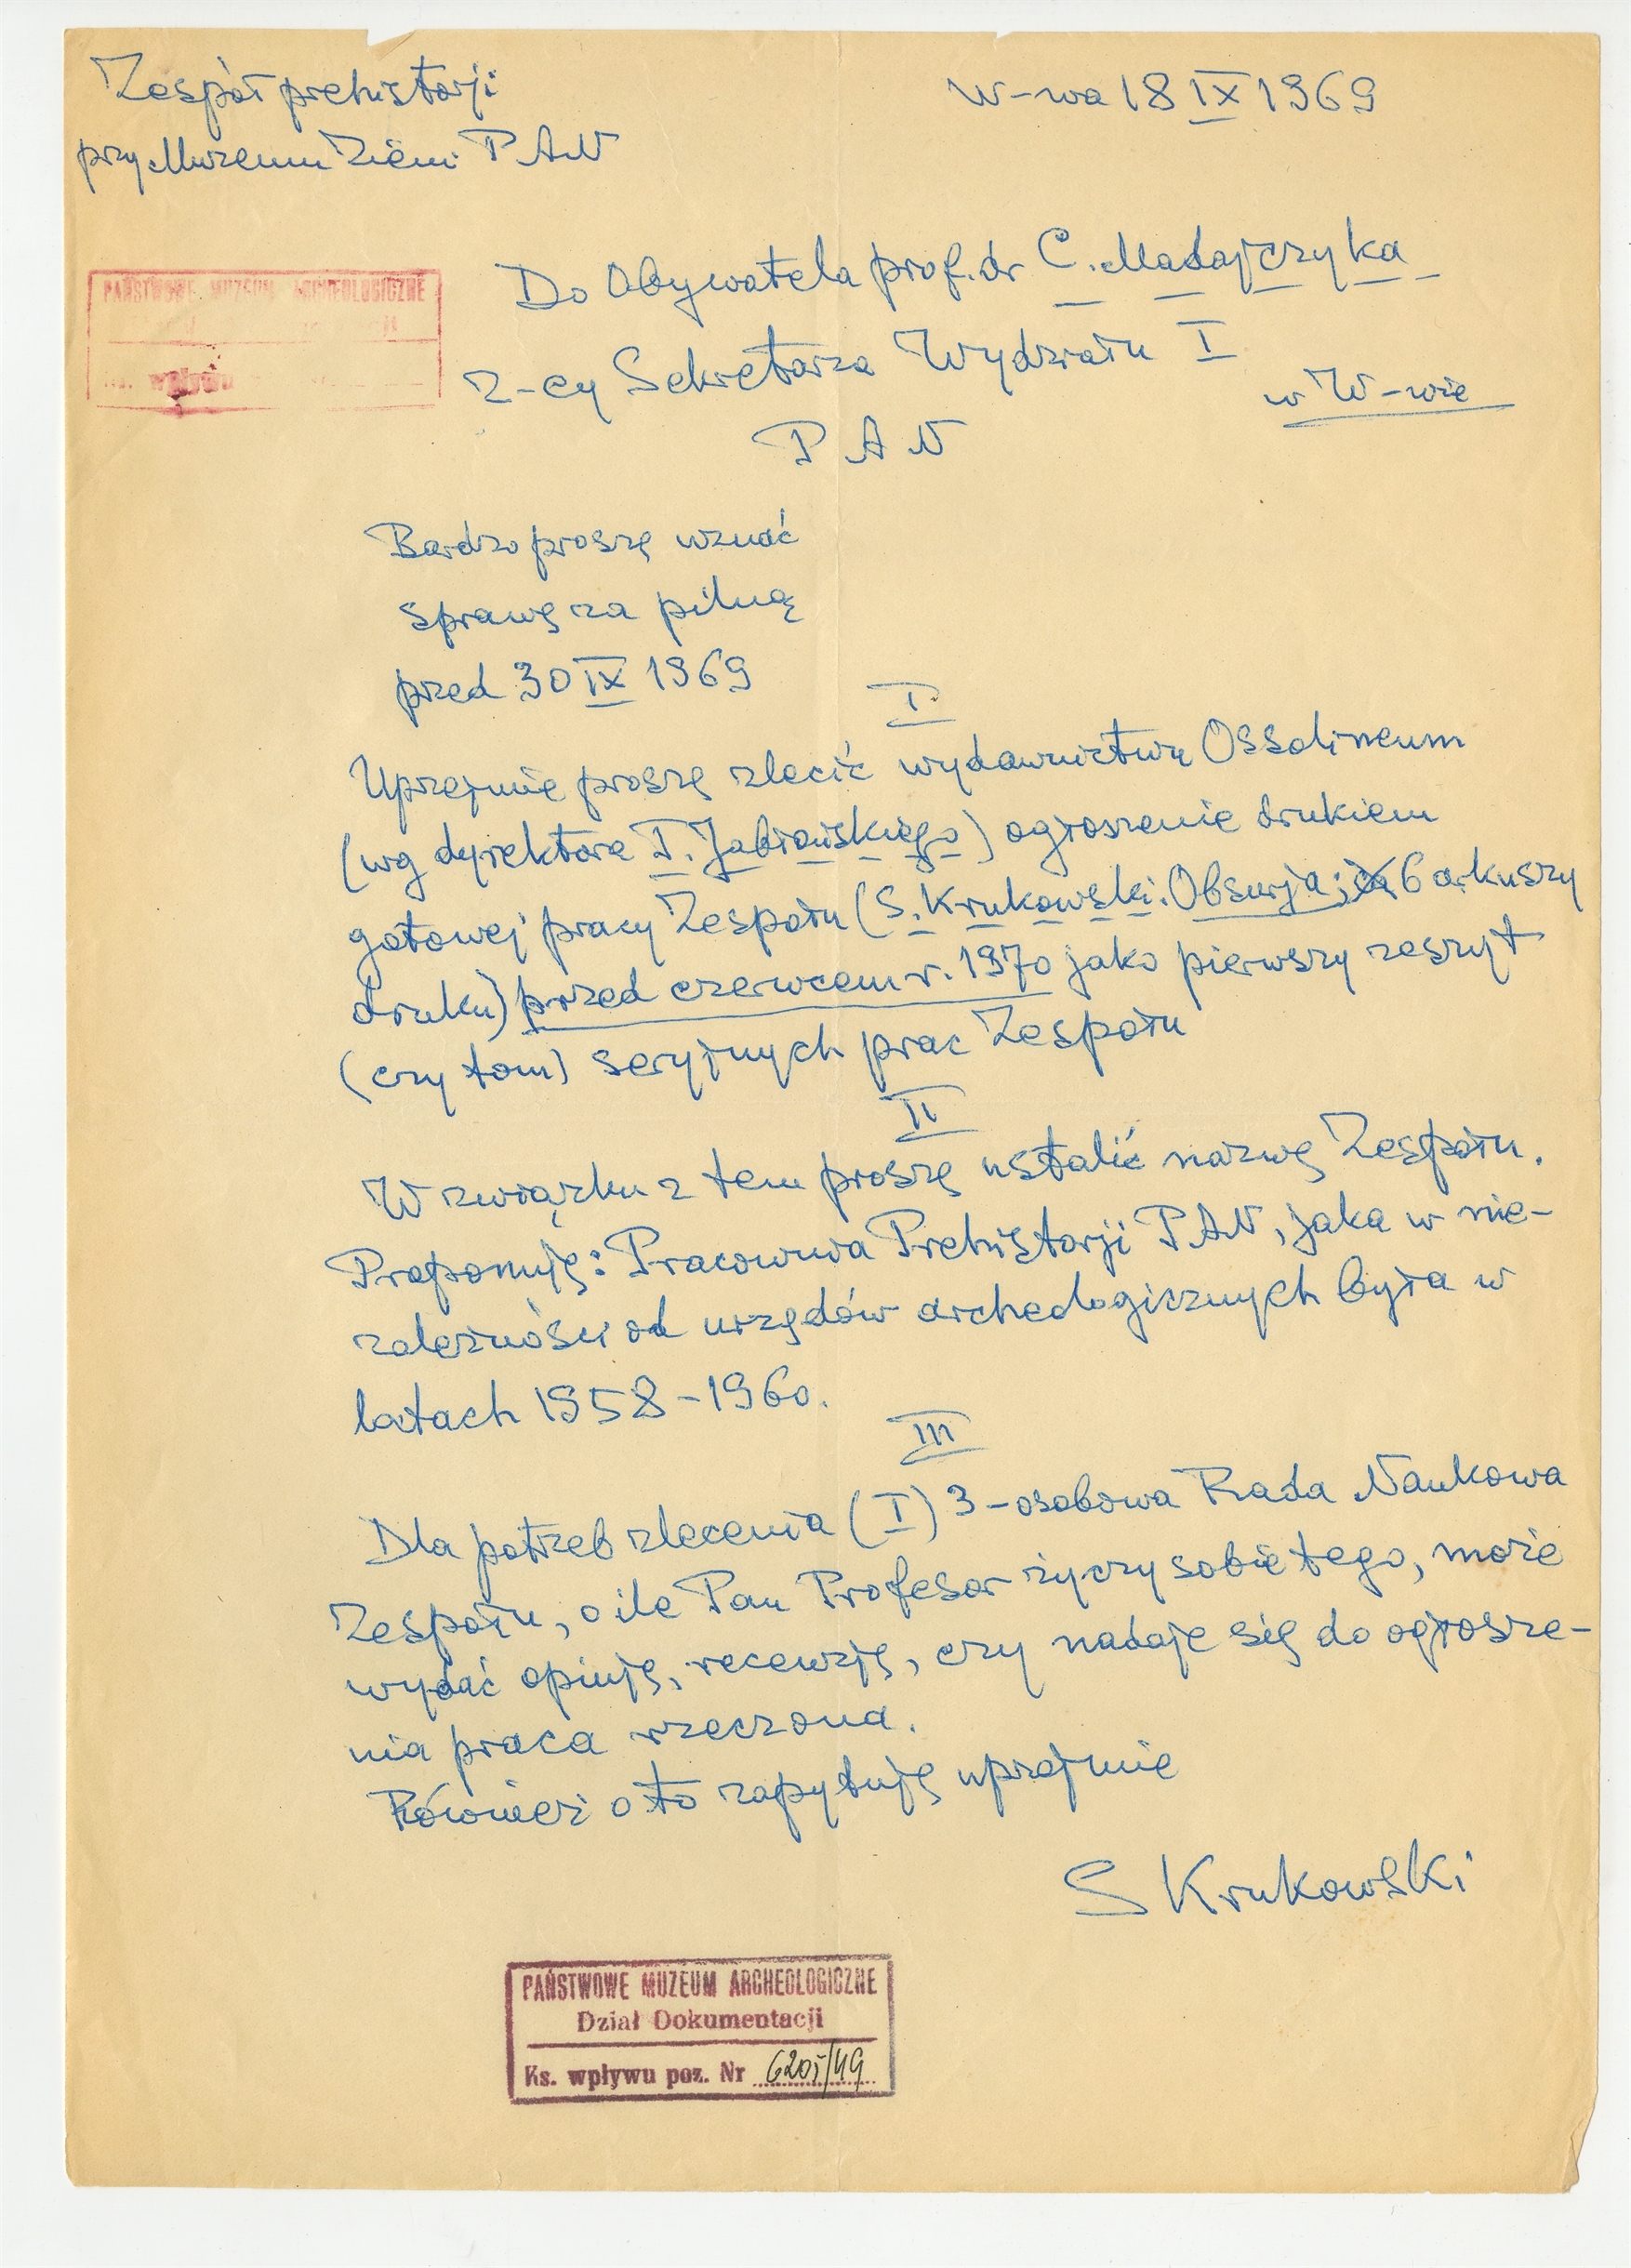 Zespół prehistorji
przy Muzeum Ziemi PAN
W-wa 18 IX 1969
PAŃSTWOWE MUZEUM ARCHEOLOGICZNE
Ks. wpływu
Do Obywatela prof. dr C. Madajczyka
Z-cy Sekretarza Wydziału I
w W-wie
PAN
Bardzo proszę uznać
sprawę za pilną
przed 30 IX 1969
I
Uprzejmie proszę zlecić wydawnictwu Ossolineum
(wg dyrektora I. Jabłońskiego) ogłoszenie drukiem
gotowej pracy Zespołu (S. Krukowski: Obsurja; 6 arkuszy
druku) przed czerwcem r. 1970 jako pierwszy zeszyt
(czy tom) seryjnych prac Zespołu
II
W związku z tem proszę ustalić nazwę Zespołu.
Proponuję: Pracownia Prehistorji PAN, jaka w nie-
zależności od urzędów archeologicznych była w
latach 1958-1960.
III
Dla potrzeb zlecenia (I) 3-osobowa Rada Naukowa
Zespołu, o ile Pan Profesor życzy sobie tego, może
wydać opinję, recenzję, czy nadaje się do ogłosze-
nia praca rzeczona.
Również o to zapytuję uprzejmie
S Krukowski
PAŃSTWOWE MUZEUM ARCHEOLOGICZNE
Dział Dokumentacji
Ks. wpływu poz. Nr 6205/49